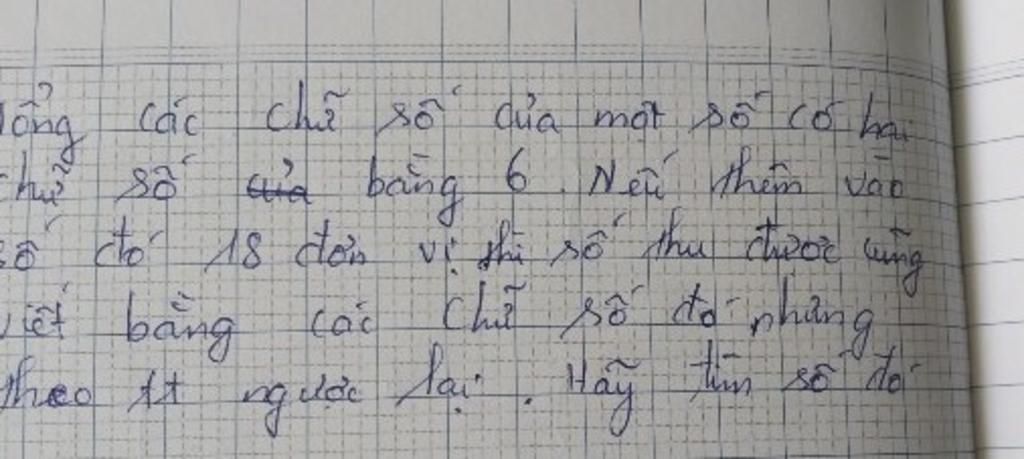 Tổng các chữ số của một số có hai
chữ số bằng 6. Nếu thêm vào
số đó 18 đơn vị thì số thu được cũng
viết bằng các chữ số đó nhưng
theo tt ngược lại. Hãy tìm số đó